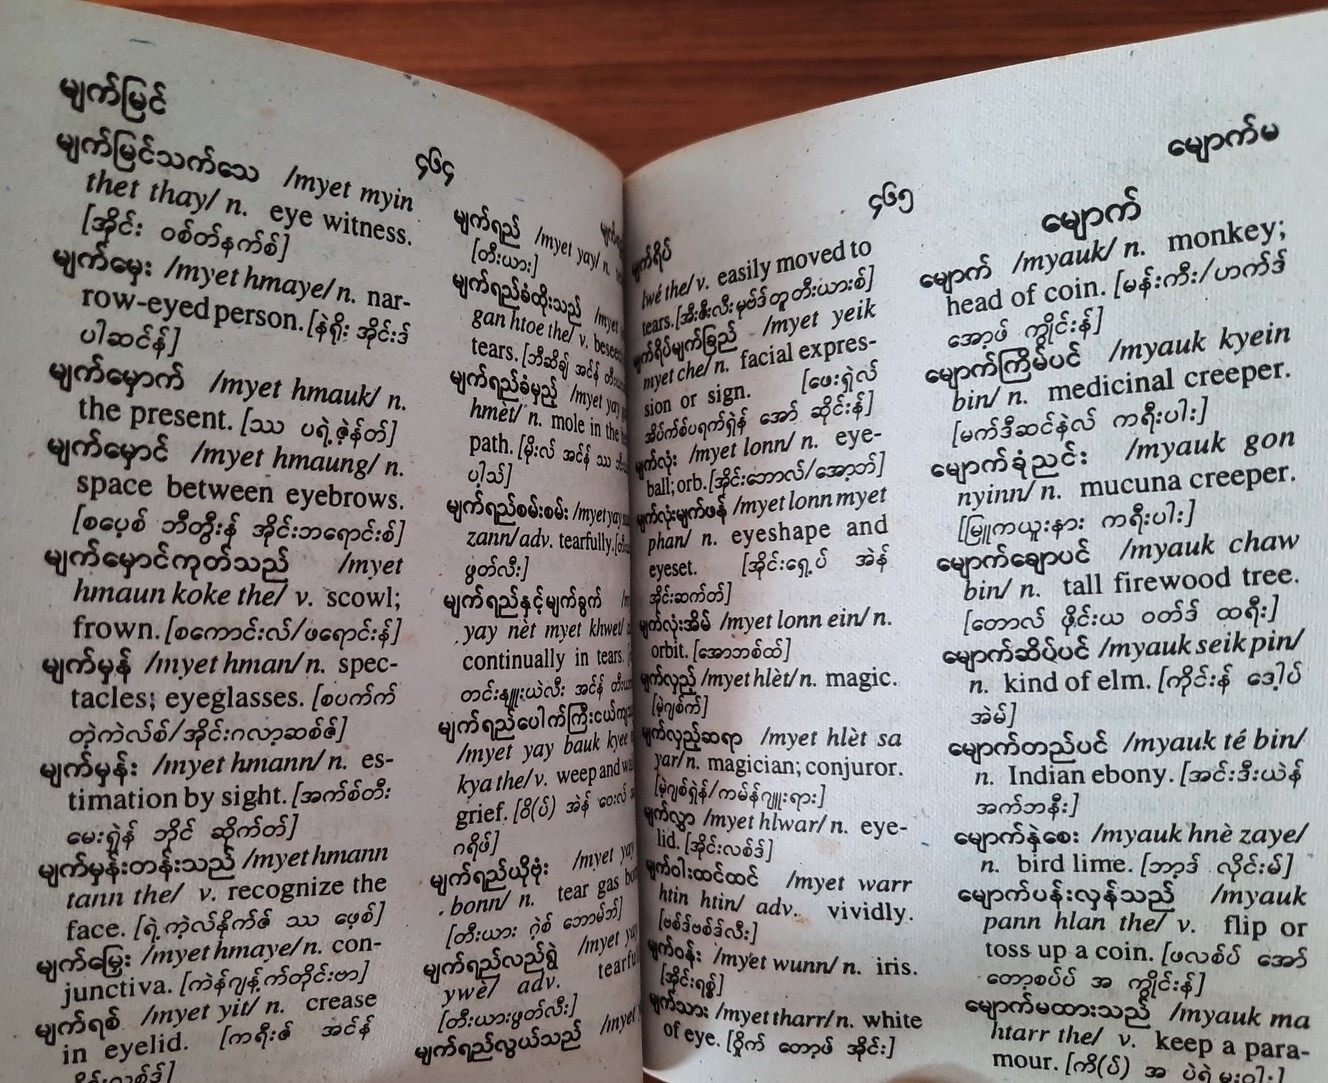 မျက်မြင်
၄၆၄
မျက်မြင်သက်သေ /myet myin
thet thay/ n. eye witness.
[အိုင်း ဝစ်တ်နက်စ်]
မျက်မှေး /myet hmaye/ n. nar-
row-eyed person. [နဲရိုး အိုင်းဒ်
ပါဆင်န်]
မျက်မှောက် /myet hmauk/ n.
the present. [သ ပရဲ့ဇဲ့န်တ်]
မျက်မှောင် /myet hmaung/ n.
space between eyebrows.
[စပေ့စ် ဘီတွီးန် အိုင်းဘရောင်းစ်]
မျက်မှောင်ကုတ်သည် /myet
hmaun koke the/ v. scowl;
frown. [စကောင်းလ်/ဖရောင်းန်]
မျက်မှန် /myet hman/ n. spec-
tacles; eyeglasses. [စပက်က်
တဲ့ကဲလ်စ်/အိုင်းဂလာ့ဆစ်ဇ်]
မျက်မှန်း /myet hmann/ n. es-
timation by sight. [အက်စ်တီး
မေးရှဲန် ဘိုင် ဆိုက်တ်]
မျက်မှန်းတန်းသည် /myet hmann
tann the/ v. recognize the
face. [ရဲ့ကဲ့လ်နိုက်ဇ် သ ဖေ့စ်]
မျက်မြှေး /myet hmaye/ n. con-
junctiva. [ကဲန်ဂျန့်က်တိုင်းဗာ]
မျက်ရစ် /myet yit/ n. crease
in eyelid. [ကရီးဇ် အင်န်
မျက်ရည် /myet yay/ n.
[တီးယား]
မျက်ရည်ခံထိုးသည် /myet
gan htoe the/ v.
tears. [ဘီဆိချ် အင်န်
မျက်ရည်ခံမှည့် /myet yay
hmèt/ n. mole in the
path. [မိုးလ် အင်န် သ
ပါ့သ်]
မျက်ရည်စမ်းစမ်း /myet yay
zann/ adv. tearfully.
ဖွတ်လီး]
မျက်ရည်နှင့်မျက်ခွက်
yay nèt myet khwet/
continually in tears.
တင်းနျူးယဲလီး အင်န်
မျက်ရည်ပေါက်ကြီးငယ်ကျ
/myet yay bauk kyee
kya the/ v. weep and
grief. [ဝိ(ပ်) အဲန် ဝေးလ်
ဂရိဖ်]
မျက်ရည်ယိုဗုံး /myet yay
bonn/ n. tear gas
[တီးယား ဂဲ့စ် ဘောမ်ဘ်]
မျက်ရည်လည်ရွဲ /myet
ywè/ adv.
[တီးယားဖွတ်လီး]
မျက်ရည်လွယ်သည် /myet
မျက်ရိပ်
၄၆၅
မျောက်မ
lwé the/ v. easily moved to
tears. [အီးစီးလီး မုဗ်ဒ် တူ တီးယားစ်]
မျက်ရိပ်မျက်ခြည် /myet yeik
myet che/ n. facial expres-
sion or sign. [ဖေးရှဲလ်
အိပ်က်စ်ပရက်ရှဲန် အော် ဆိုင်းန်]
မျက်လုံး /myet lonn/ n. eye-
ball; orb. [အိုင်းဘောလ်/အော့ဘ်]
မျက်လုံးမျက်ဖန် /myet lonn myet
phan/ n. eyeshape and
eyeset. [အိုင်းရှေ့ပ် အဲန်
အိုင်းဆက်တ်]
မျက်လုံးအိမ် /myet lonn ein/ n.
orbit. [အောဘစ်ထ်]
မျက်လှည့် /myet hlèt/ n. magic.
[မဲ့ဂျစ်က်]
မျက်လှည့်ဆရာ /myet hlèt sa
yar/ n. magician; conjuror.
[မဲ့ဂျစ်ရှဲန်/ကမ်န်ဂျူးရား]
မျက်လွှာ /myet hlwar/ n. eye-
lid. [အိုင်းလစ်ဒ်]
မျက်ဝါးထင်ထင် /myet warr
htin htin/ adv. vividly.
[ဗစ်ဒ်ဗစ်ဒ်လီး]
မျက်ဝန်း /myet wunn/ n. iris.
[အိုင်းရစ္စ်]
မျက်သား /myet tharr/ n. white
of eye. [ဝှိုက် တော့ဖ် အိုင်း]
မျောက်
မျောက် /myauk/ n. monkey;
head of coin. [မန်းကီး/ဟက်ဒ်
အော့ဖ် ကွိုင်းန်]
မျောက်ကြိမ်ပင် /myauk kyein
bin/ n. medicinal creeper.
[မက်ဒီဆင်နဲလ် ကရီးပါး]
မျောက်ခုံညင်း /myauk gon
nyinn/ n. mucuna creeper.
[မြူကယူးနား ကရီးပါး]
မျောက်ချောပင် /myauk chaw
bin/ n. tall firewood tree.
[တောလ် ဖိုင်းယ ဝတ်ဒ် ထရီး]
မျောက်ဆိပ်ပင် /myauk seik pin/
n. kind of elm. [ကိုင်းန် ဒေါ့ပ်
အဲမ်]
မျောက်တည်ပင် /myauk té bin/
n. Indian ebony. [အင်းဒီးယဲန်
အက်ဘနီး]
မျောက်နှဲစေး /myauk hnè zaye/
n. bird lime. [ဘာ့ဒ် လိုင်းမ်]
မျောက်ပန်းလှန်သည် /myauk
pann hlan the/ v. flip or
toss up a coin. [ဖလစ်ပ် အော်
တော့စပ်ပ် အ ကွိုင်းန်]
မျောက်မထားသည် /myauk ma
htarr the/ v. keep a para-
mour. [ကိ(ပ်) အ